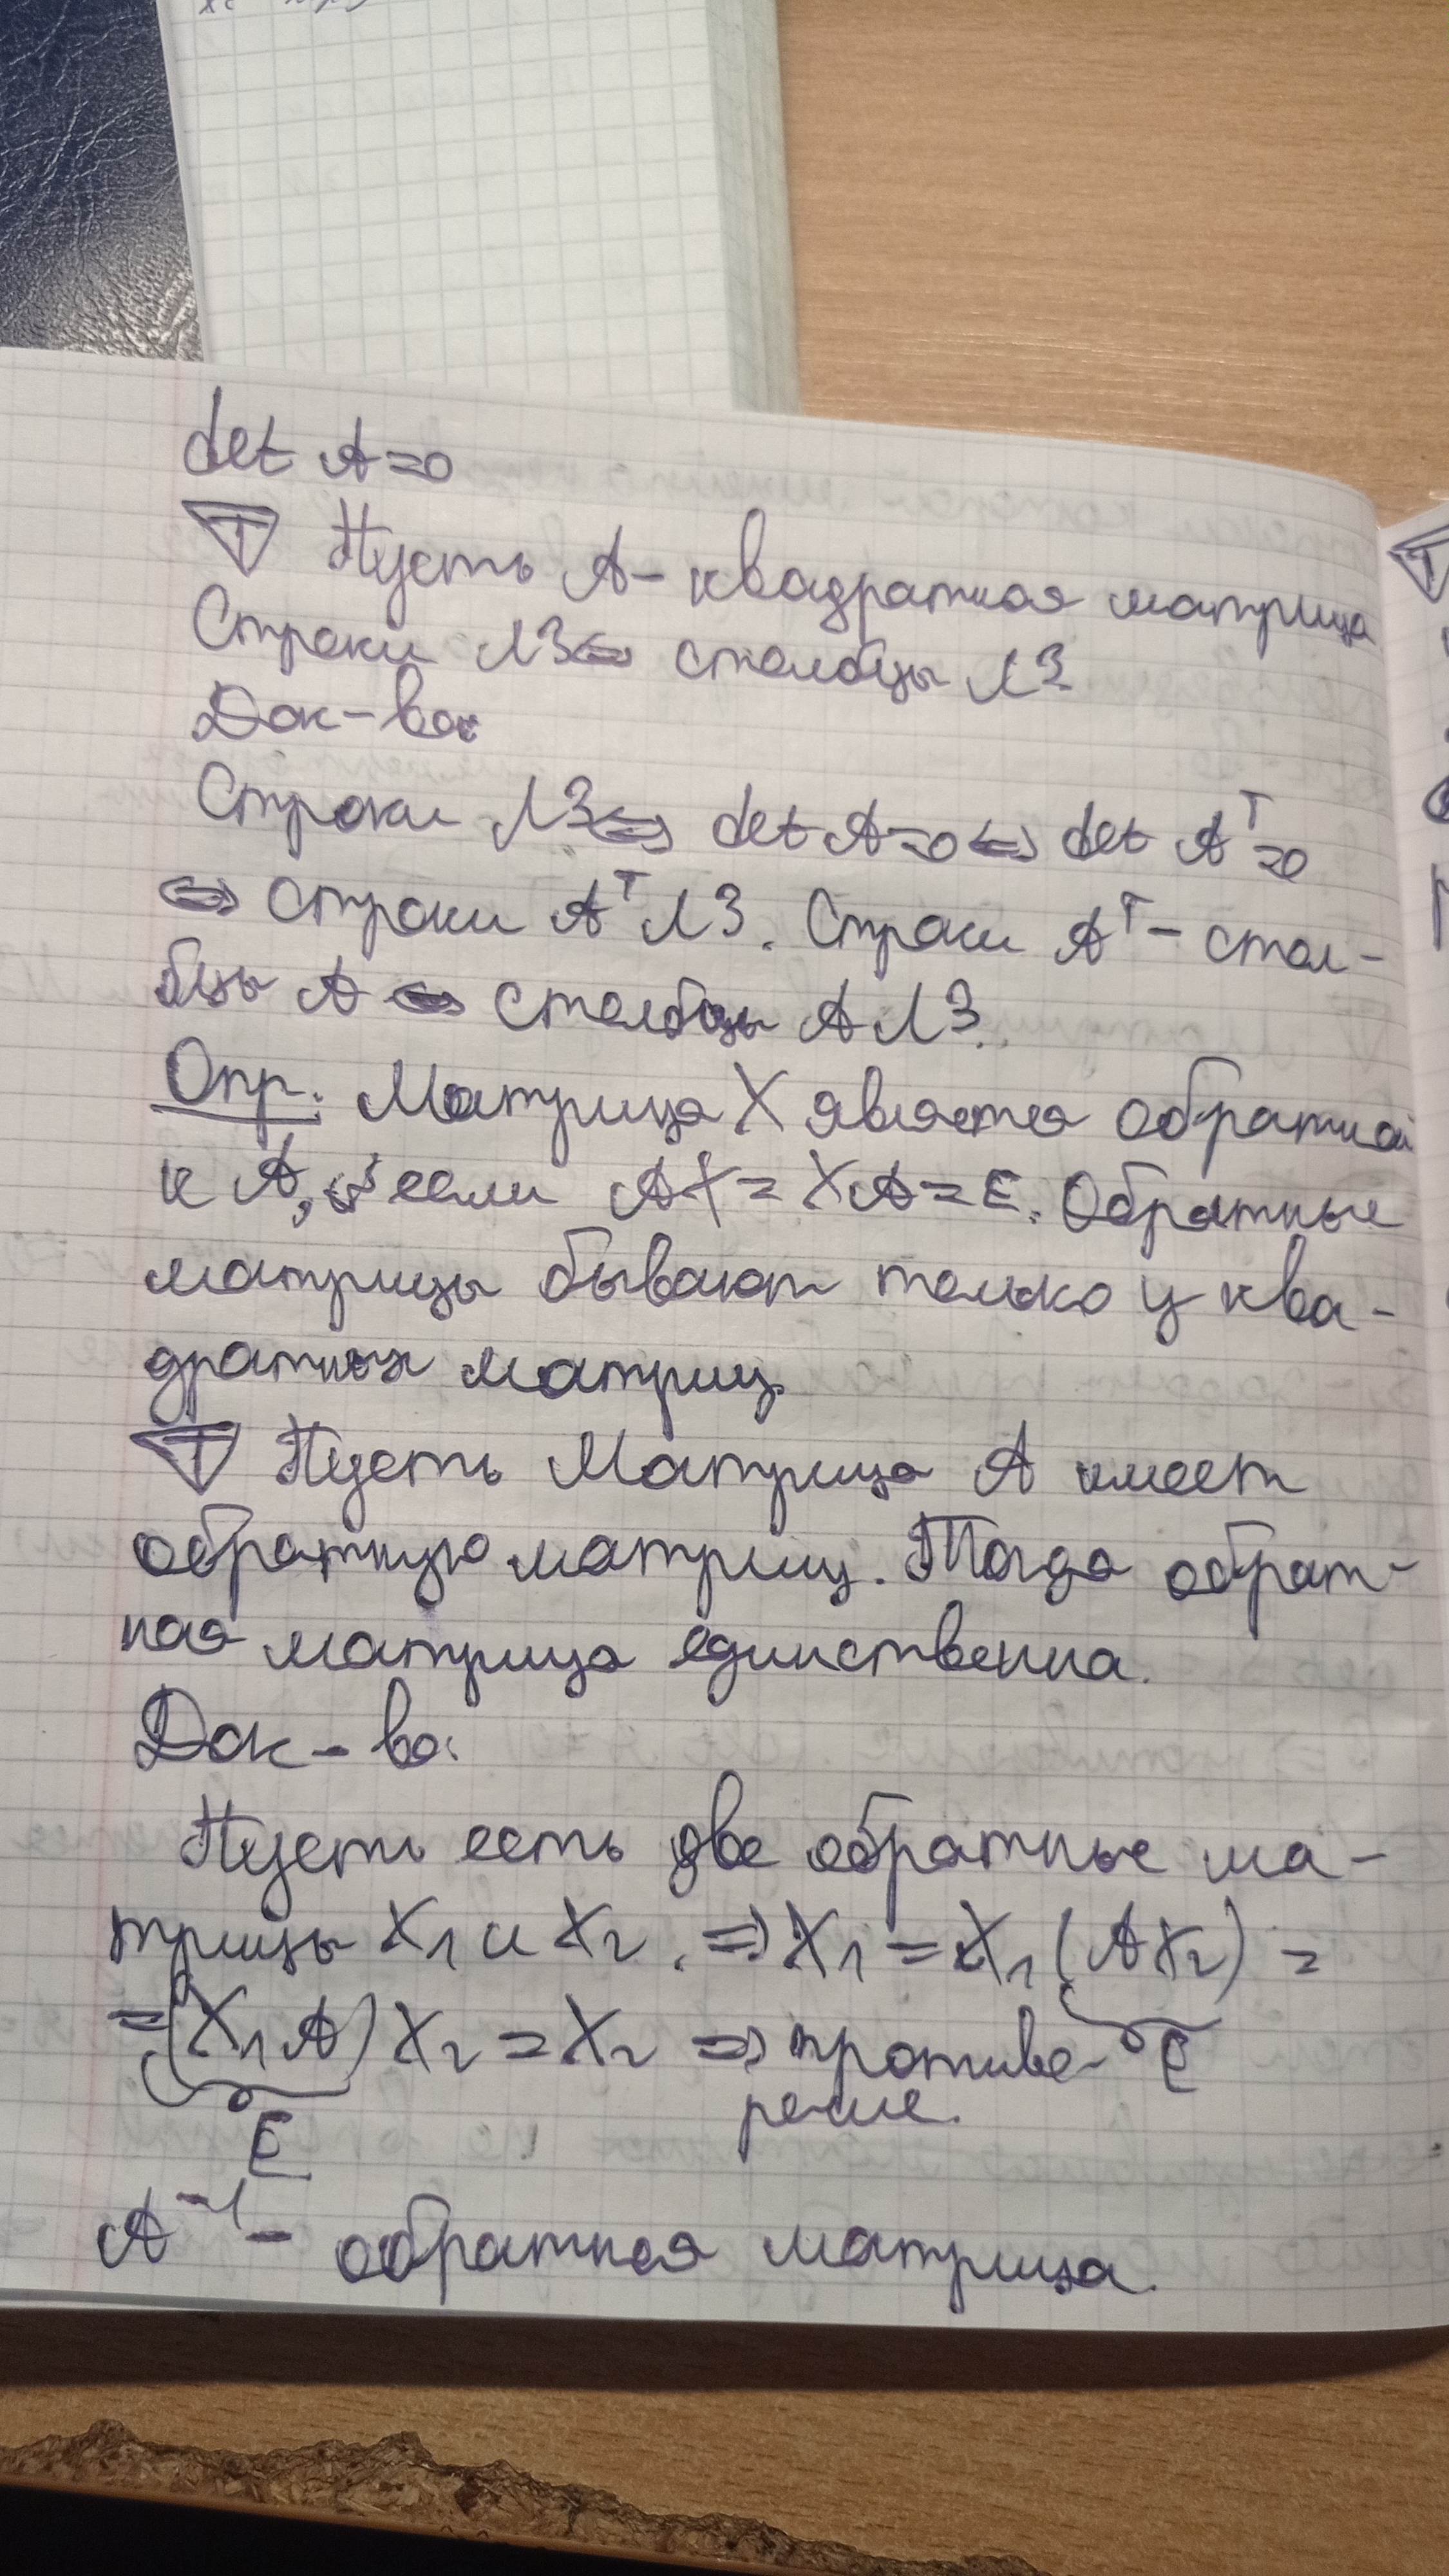 det A=0
T Пусть A - квадратная матрица
Строки ЛЗ ⇔ столбцы ЛЗ
Док-во:
Строки ЛЗ ⇔ det A=0 ⇔ det Aᵀ=0
⇔ строки Aᵀ ЛЗ. Строки Aᵀ - стол-
бцы A ⇔ столбцы A ЛЗ.
Опр.: Матрица X является обратной
к A, если AX = XA = E. Обратные
матрицы бывают только у ква-
дратных матриц.
T Пусть Матрица A имеет
обратную матриц. Тогда обрат-
ная матрица единственна.
Док-во:
Пусть есть две обратные ма-
трицы X₁ и X₂. ⇒ X₁ = X₁(AX₂) =
=(X₁A)X₂ = X₂ ⇒ противо- E
речие.
E
A⁻¹ - обратная матрица.